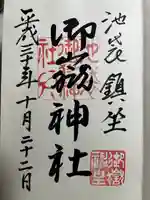 池袋鎮坐
御嶽神社
平成三十年十月二十二日